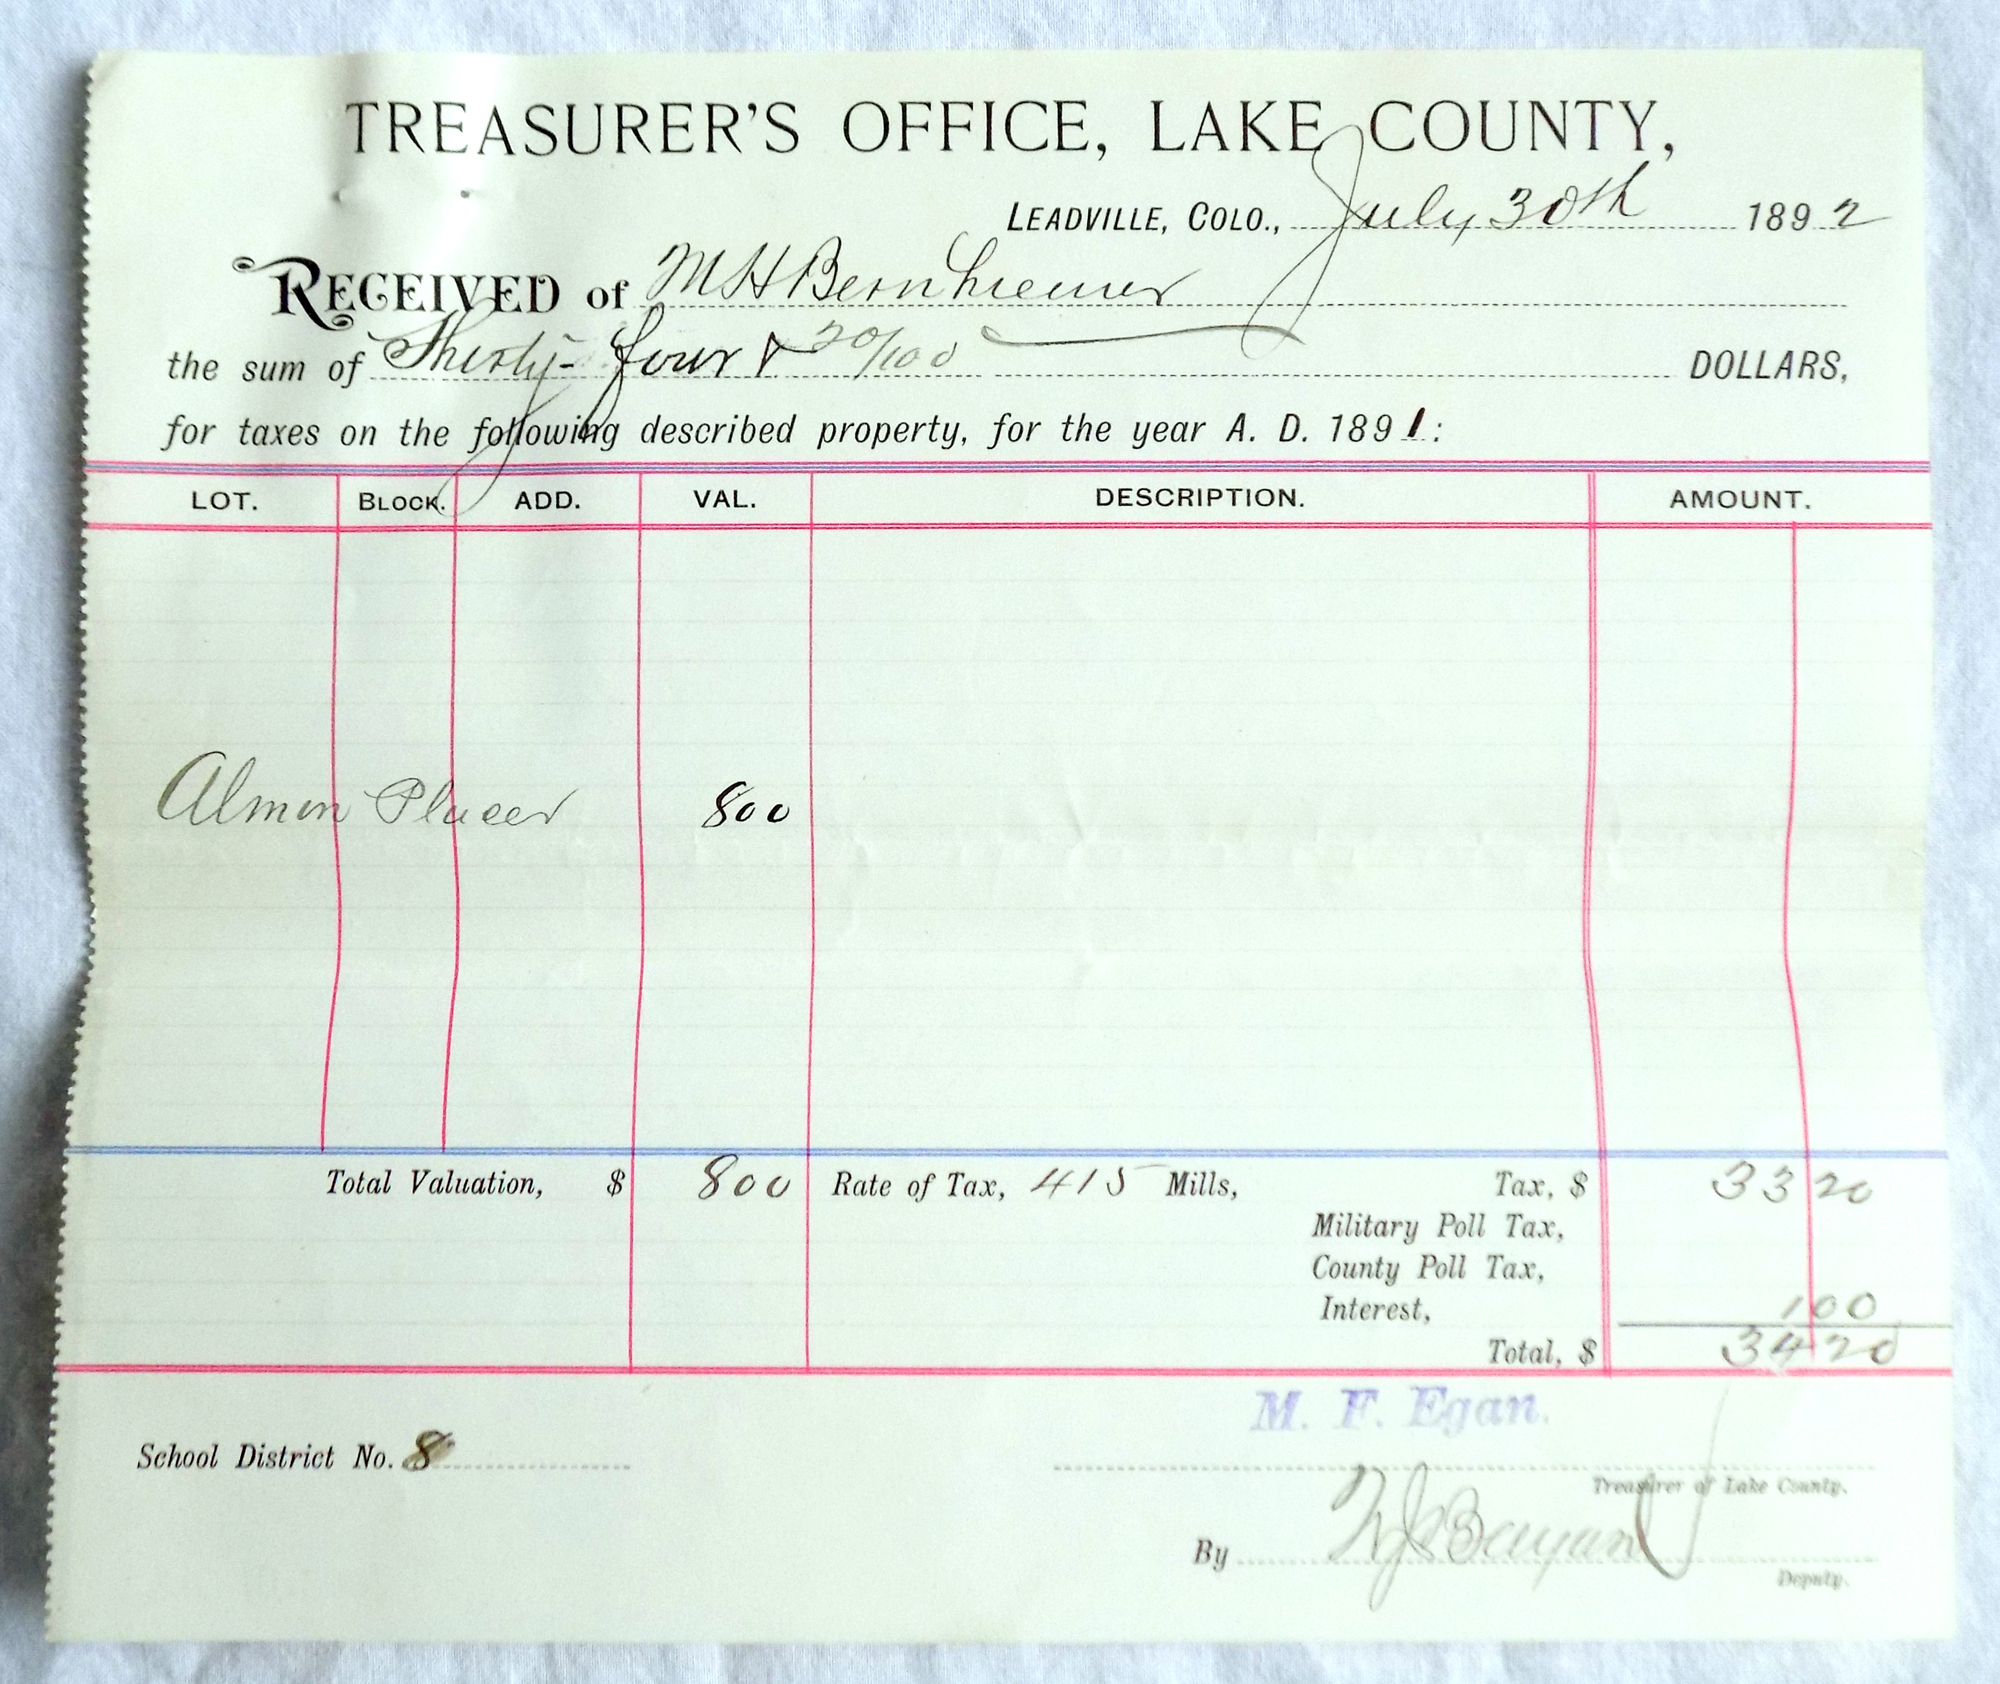 TREASURER'S OFFICE, LAKE COUNTY,
LEADVILLE, COLO., July 30th 1892
RECEIVED of M H Bernhiemer
the sum of Thirty-four & 20/100 DOLLARS,
for taxes on the following described property, for the year A. D. 1891:
LOT. BLOCK. ADD. VAL. DESCRIPTION. AMOUNT.
Almon Placer 800
Total Valuation, $ 800 Rate of Tax, 415 Mills, Tax, $ 33 20
Military Poll Tax,
County Poll Tax,
Interest, 1 00
Total, $ 34 20
M. F. Egan.
School District No. 8
Treasurer of Lake County.
By
Deputy.